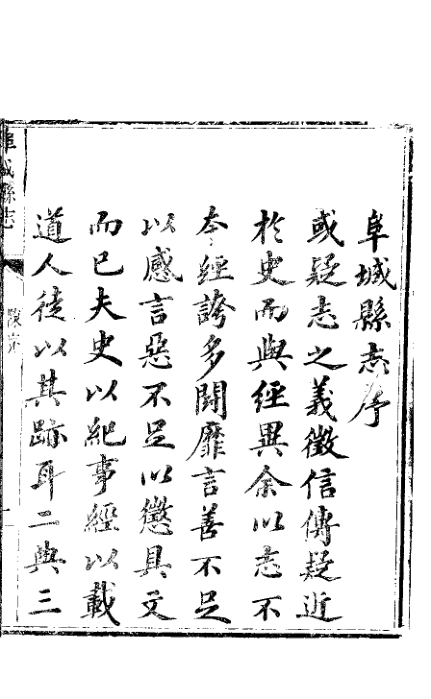 阜城縣志序
或疑志之義徵信傳疑近
於史而與經異余以志不
本經誇多鬪靡言善不足
以感言惡不足以懲具文
而已夫史以紀事經以載
道人徒以其跡耳二典三
阜城縣志
陳序